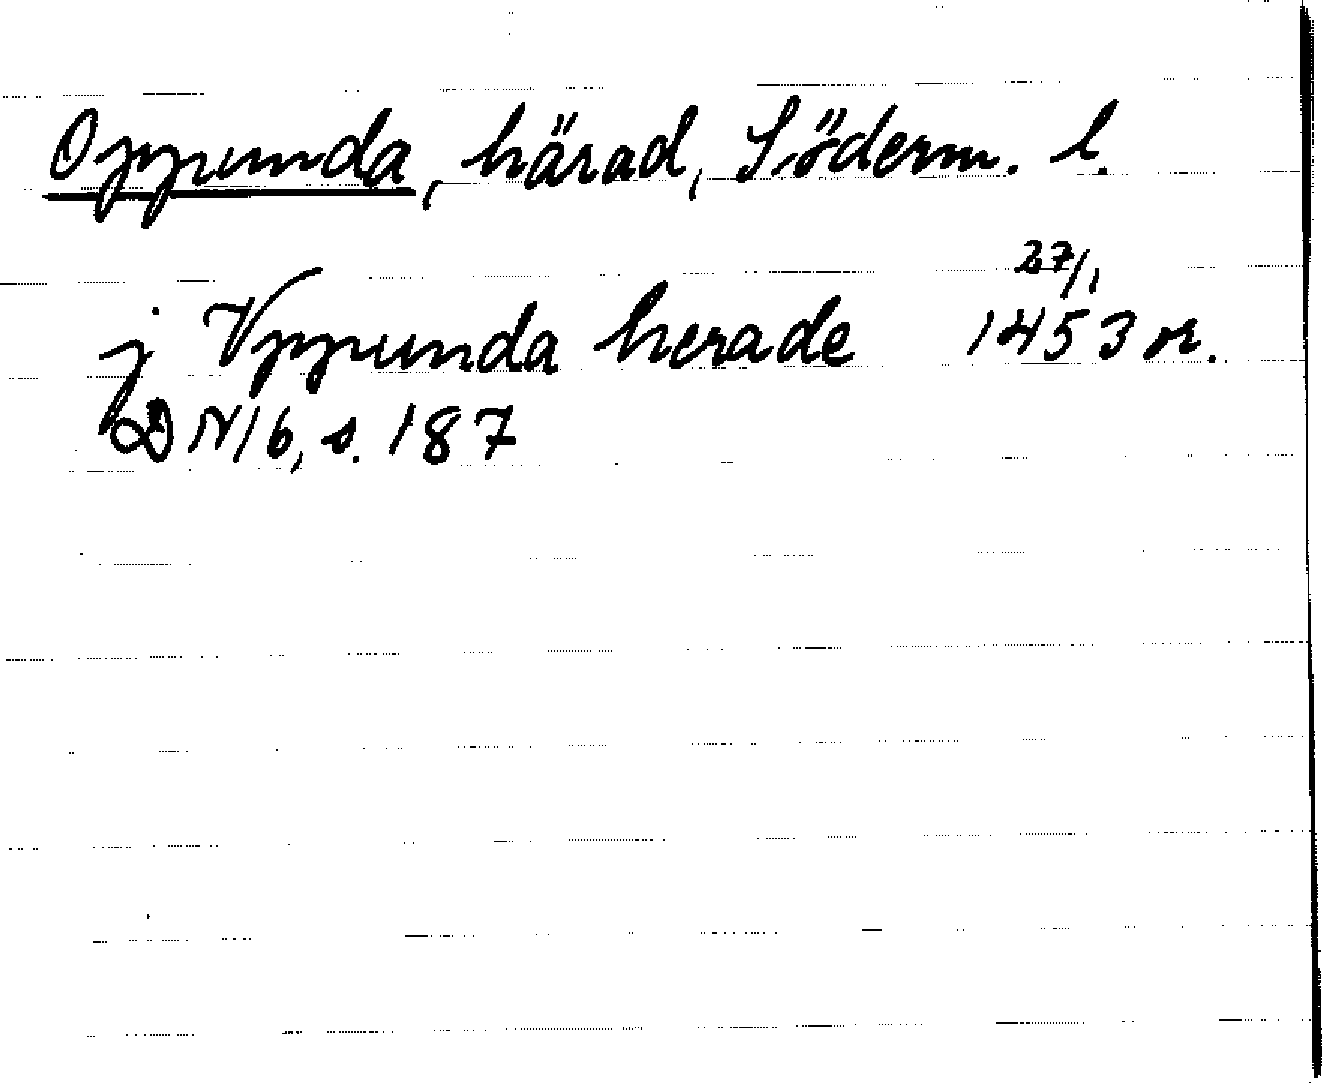 Oppunda, härad, Söderm. l.
27/1
j Vppunda herade 1453 or.
DN 16, s. 187